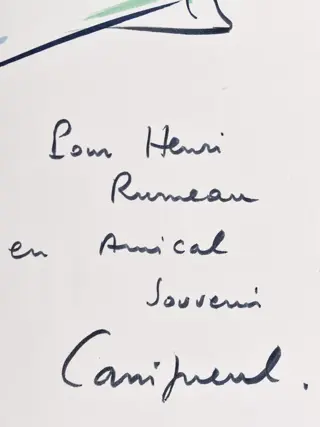 Pour Henri
Rumeau
en Amical
Souvenir